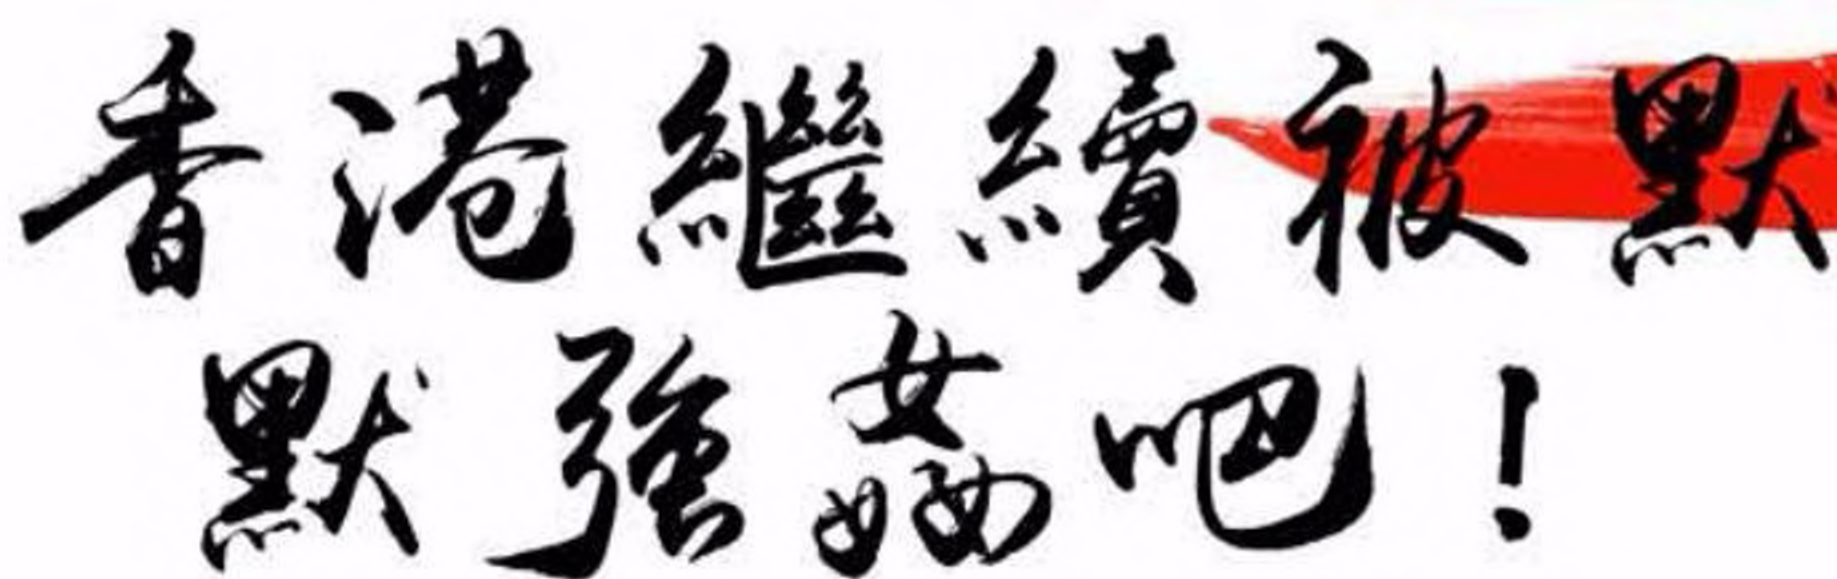 香港繼續被默
默強姦吧！